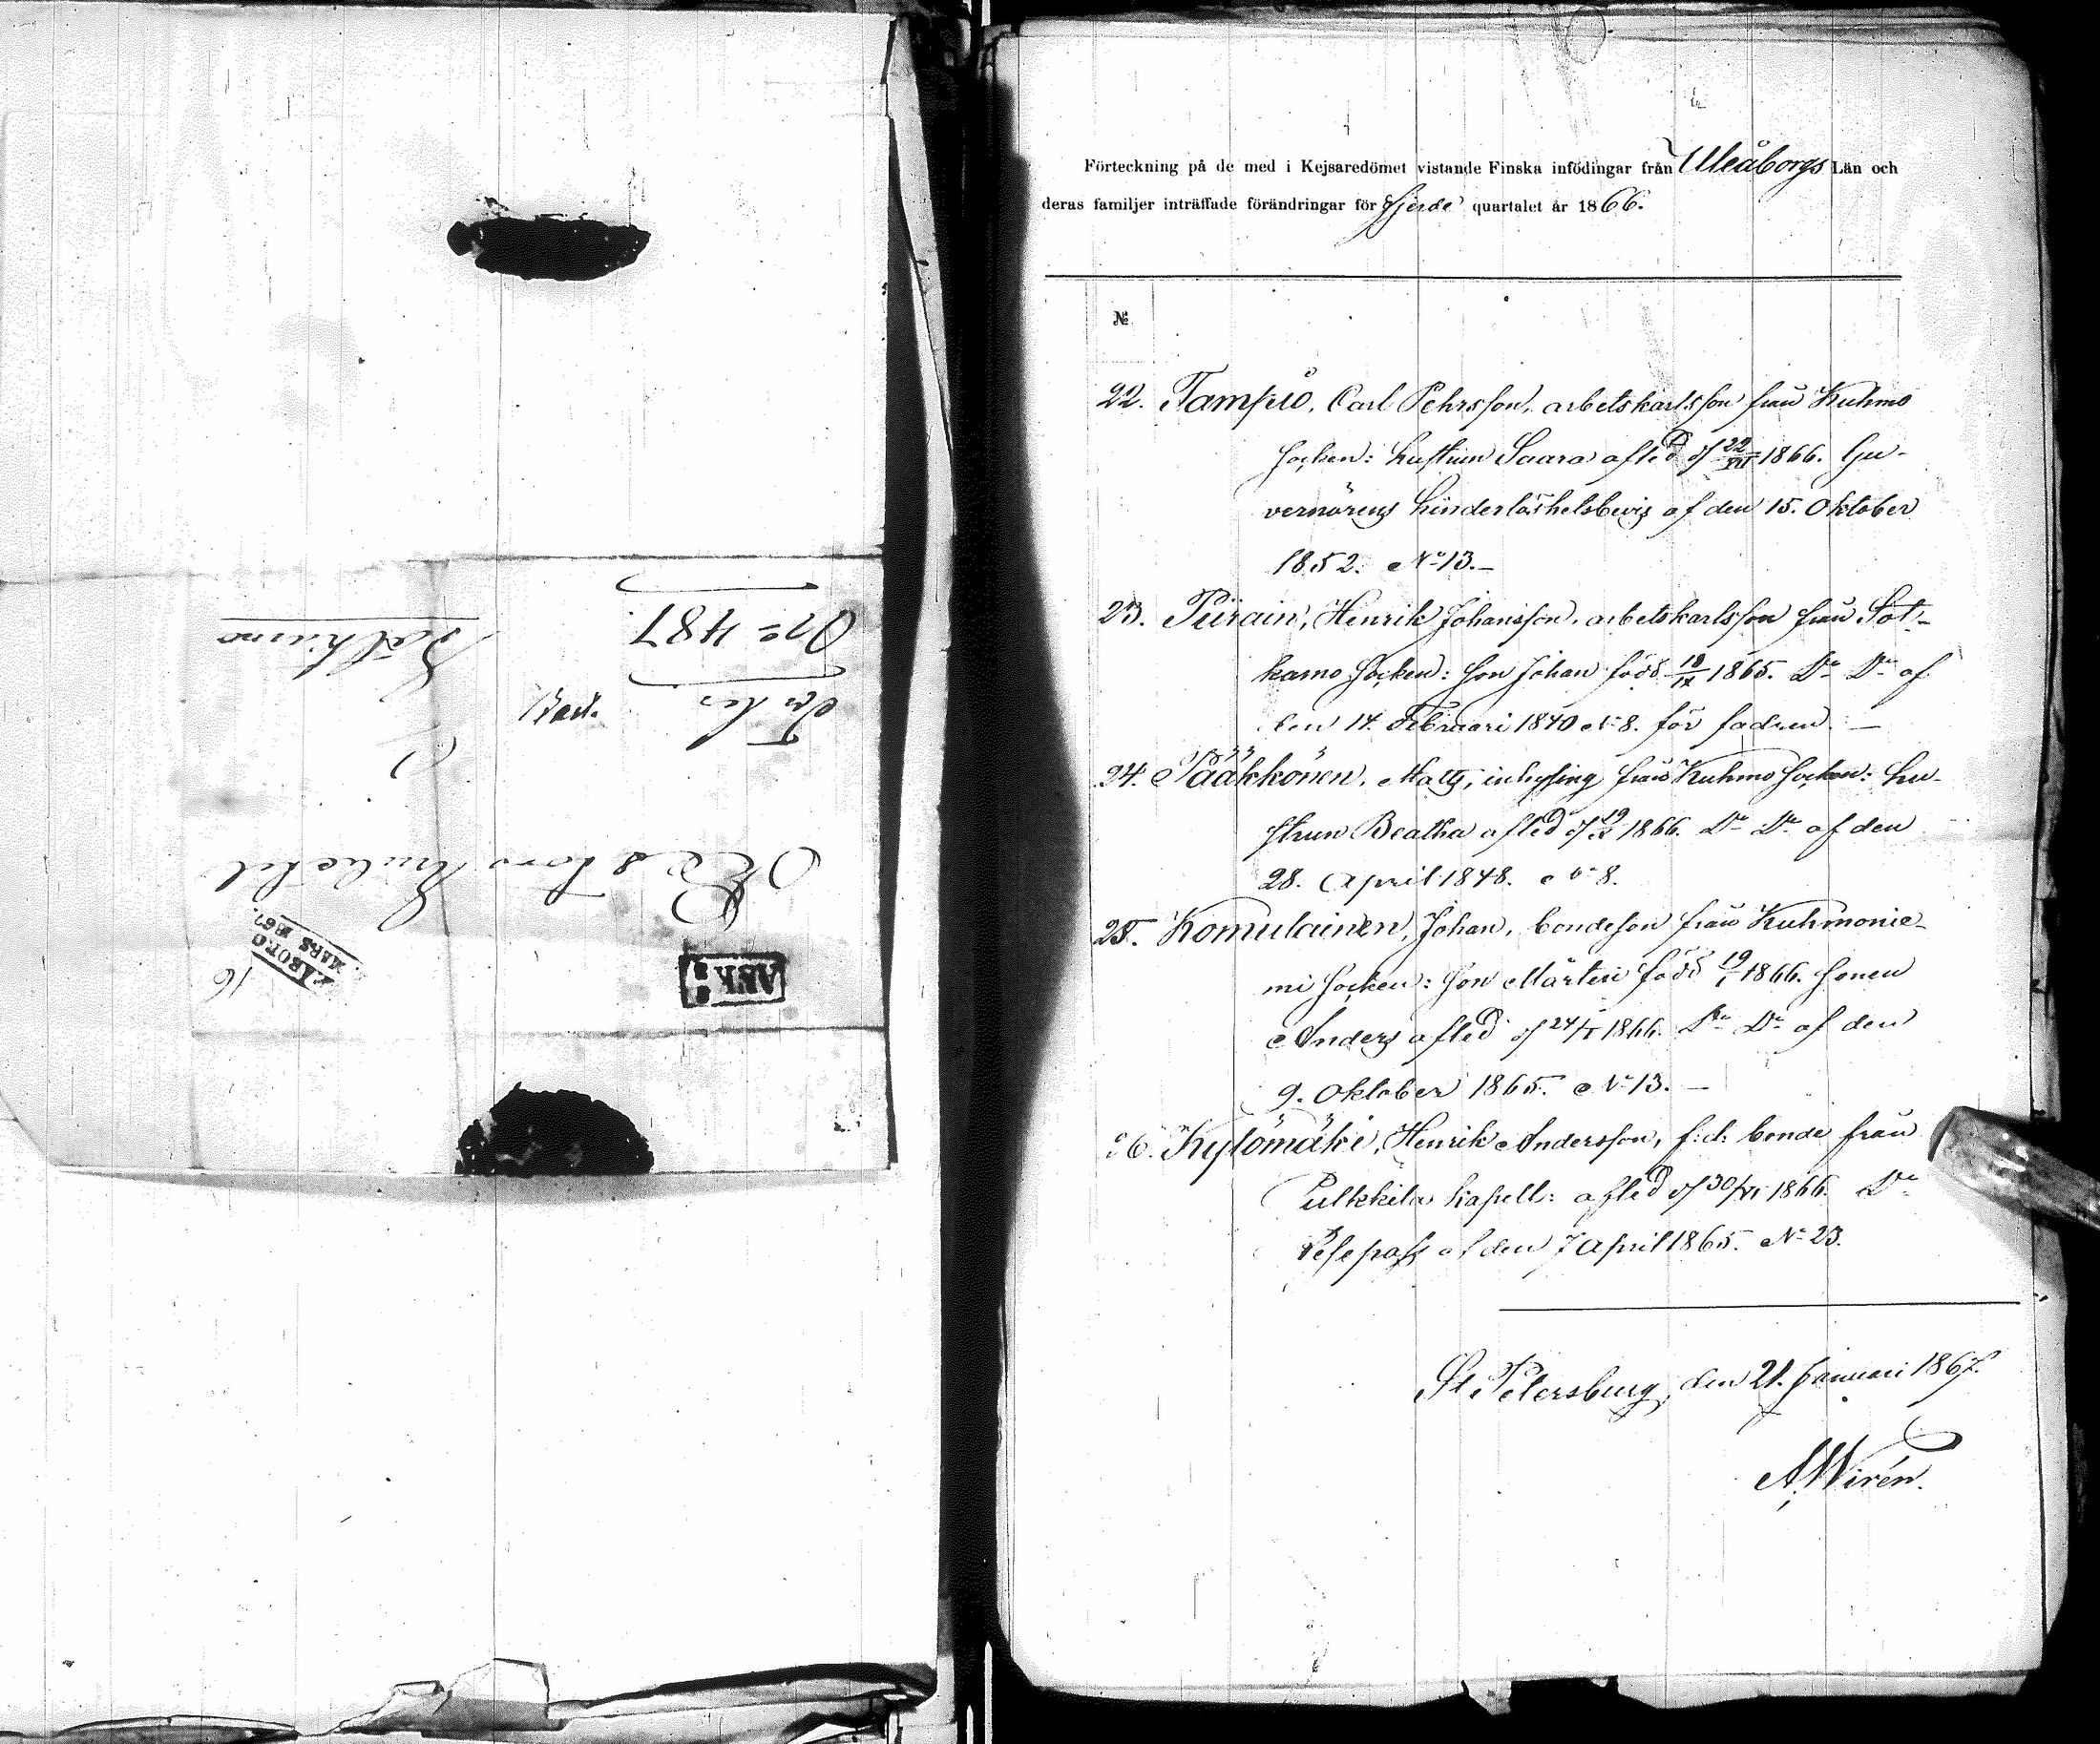 Pastors Embetet
Bref.
Nro 487
Sotkamo
ULEÅBORG
MARS 1867.
16
ANK
Förteckning på de med i Kejsaredömet vistande Finska infödingar från Uleåborgs Län och
deras familjer inträffade förändringar för fjerde quartalet år 1866.
№
22. Tampio, Carl Pehrsson, arbetskarlsson från Kuhmo
socken: hustrun Saara afled d 22/XII 1866. Gu-
vernörens hinderlöshetsbevis af den 15. Oktober
1852. No 13.–
23. Piirain, Henrik Johansson, arbetskarlsson från Sot-
kamo socken: son Johan född 18/IX 1865. Do Do af
den 14. Februari 1840 No 8. för fadren. –
24. Pääkkönen, Matts, inhysing från Kuhmo socken: hu-
strun Beatha afled d 19/X 1866. Do Do af den
28. April 1848. No 8.
25. Komulainen, Johan, bondeson från Kuhmonie-
mi socken: son Mårten född 19/I 1866. sonen
Anders afled d 24/I 1866. Do Do af den
9. Oktober 1865. No 13. –
26. Kylömäki, Henrik Andersson, f:d: bonde från
Pulkkila kapell: afled d 30/VI 1866. Do
Resepass af den 7 April 1865. No 23.
St Petersburg, den 21. Januari 1867.
A. Wirén.